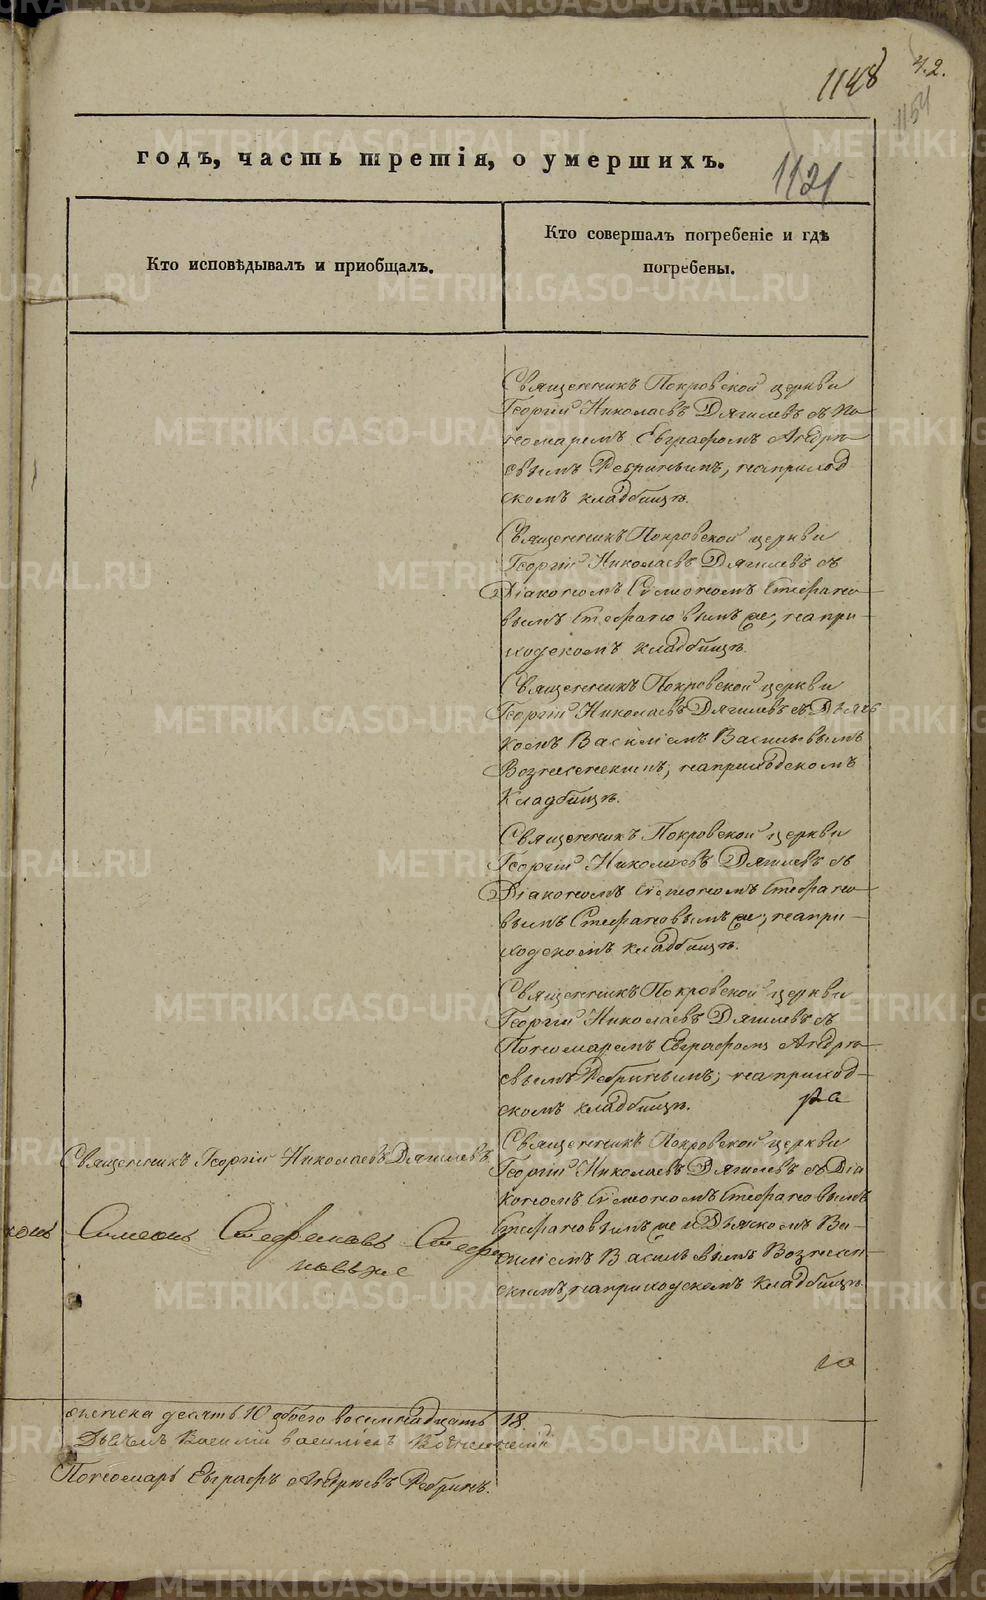 1148
ч.2.
1154
годъ, часть третія, о умершихъ.
1121
Кто исповѣдывалъ и пріобщалъ.
Кто совершалъ погребеніе и гдѣ
погребены.
Священникъ Покровской церкви
Георгій Николаевъ Дягилевъ съ По
номаремъ Евграфомъ Андрѣ
евымъ Ребринымъ, на приход
скомъ кладбищѣ.
Священникъ Покровской церкви
Георгій Николаевъ Дягилевъ съ
Діакономъ Сѵмеономъ Стефано
вымъ Стефановымъ же, на при-
ходскомъ кладбищѣ.
Священникъ Покровской церкви
Георгій Николаевъ Дягилевъ съ Дьяч
комъ Василіемъ Васильевымъ
Вознесенскимъ, на приходскомъ
Кладбищѣ.
Священникъ Покровской церкви
Георгій Николаевъ Дягилевъ съ
Діакономъ Сѵмеономъ Стефано
вымъ Стефановымъ же, на при-
ходскомъ кладбищѣ.
Священникъ Покровской церкви
Георгій Николаевъ Дягилевъ съ
Пономаремъ Евграфомъ Андрѣ
евымъ Ребринымъ, на приход-
скомъ кладбищѣ.
Священникъ Георгій Николаевъ Дягилевъ
Священникъ Покровской церкви
Георгій Николаевъ Дягилевъ съ Діа
кономъ Сѵмеономъ Стефановымъ
Стефановымъ же и Дьячкомъ Ва-
силіемъ Васильевымъ Вознесен-
скимъ, на приходскомъ кладбищѣ.
конъ Симеонъ Стефановъ Стефа
новъ же
десять 10 обоего восемнадцать 18
Дьячекъ Василій Васильевъ Вознесенскій
Пономарь Евграфъ Андреевъ Ребринъ.
METRIKI.GASO-URAL.RU